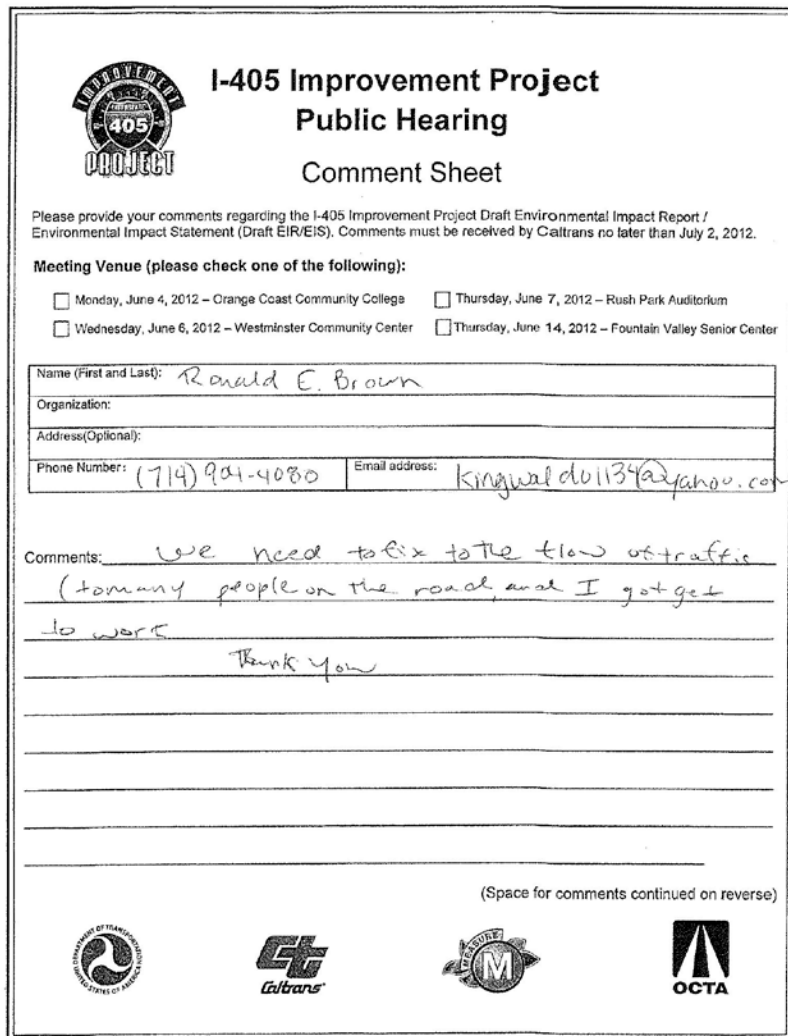 IMPROVEMENT
405
PROJECT
I-405 Improvement Project
Public Hearing
Comment Sheet
Please provide your comments regarding the I-405 Improvement Project Draft Environmental Impact Report /
Environmental Impact Statement (Draft EIR/EIS). Comments must be received by Caltrans no later than July 2, 2012.
Meeting Venue (please check one of the following):
Monday, June 4, 2012 – Orange Coast Community College Thursday, June 7, 2012 – Rush Park Auditorium
Wednesday, June 6, 2012 – Westminster Community Center Thursday, June 14, 2012 – Fountain Valley Senior Center
Name (First and Last): Ronald E. Brown
Organization:
Address(Optional):
Phone Number: (714) 904-4080 Email address: kingwaldo1134@yahoo.com
Comments: We need to fix to the flow of traffic
(tomany people on the road, and I got get
to work
Thank you
(Space for comments continued on reverse)
DEPARTMENT OF TRANSPORTATION
UNITED STATES OF AMERICA
Caltrans
MEASURE
M
OCTA